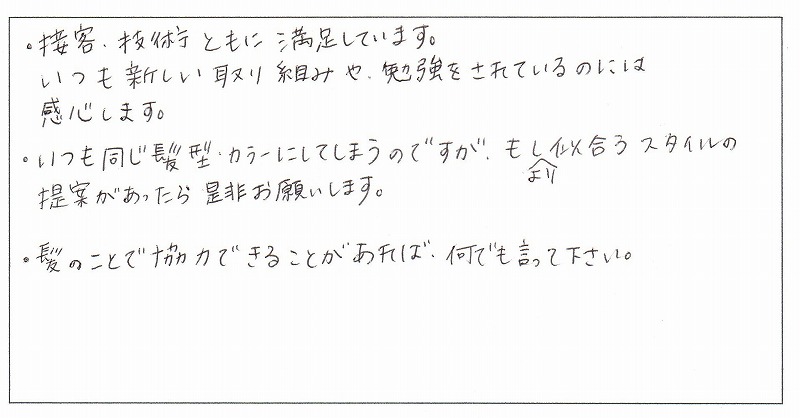 ・接客・技術ともに満足しています。
いつも新しい取り組みや、勉強をされているのには
感心します。
・いつも同じ髪型・カラーにしてしまうのですが、もし似合うスタイルの
より
提案があったら是非お願いします。
・髪のことで協力できることがあれば、何でも言って下さい。